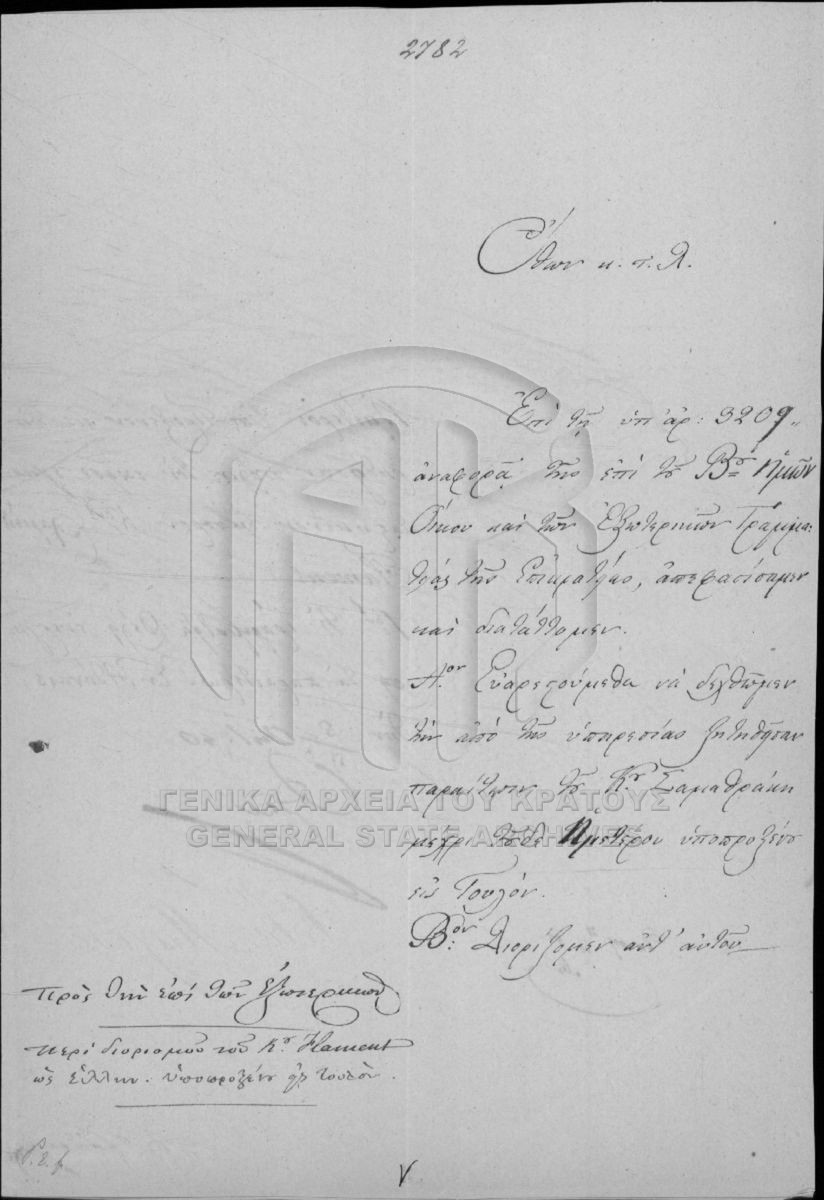 2782
Ὄθων κ. τ. λ.
Ἐπὶ τῆς ὑπ' ἀρ: 3209
ἀναφορᾶς τῆς ἐπὶ τοῦ Βου Ἡμῶν
Οἴκου καὶ τῶν Ἐξωτερικῶν Γραμμα-
τείας τῆς Ἐπικρατείας, ἀπεφασίσαμεν
καὶ διατάττομεν.
Αον Εὐαρεστούμεθα νὰ δεχθῶμεν
τὴν ἀπὸ τῆς ὑπηρεσίας ζητηθεῖσαν
παραίτησιν τοῦ Κου Σαμαθράκη
μέχρι τοῦδε Ἡμετέρου ὑποπροξένου
εἰς Τουλόν.
Βον: Διορίζομεν ἀντ' αὐτοῦ
Πρὸς τὴν ἐπὶ τῶν Ἐξωτερικῶν
περὶ διορισμοῦ τοῦ Κου Flament
ὡς Ἕλλην. ὑποπροξένου εἰς Τουλόν.
ΓΕΝΙΚΑ ΑΡΧΕΙΑ ΤΟΥ ΚΡΑΤΟΥΣ
GENERAL STATE ARCHIVES